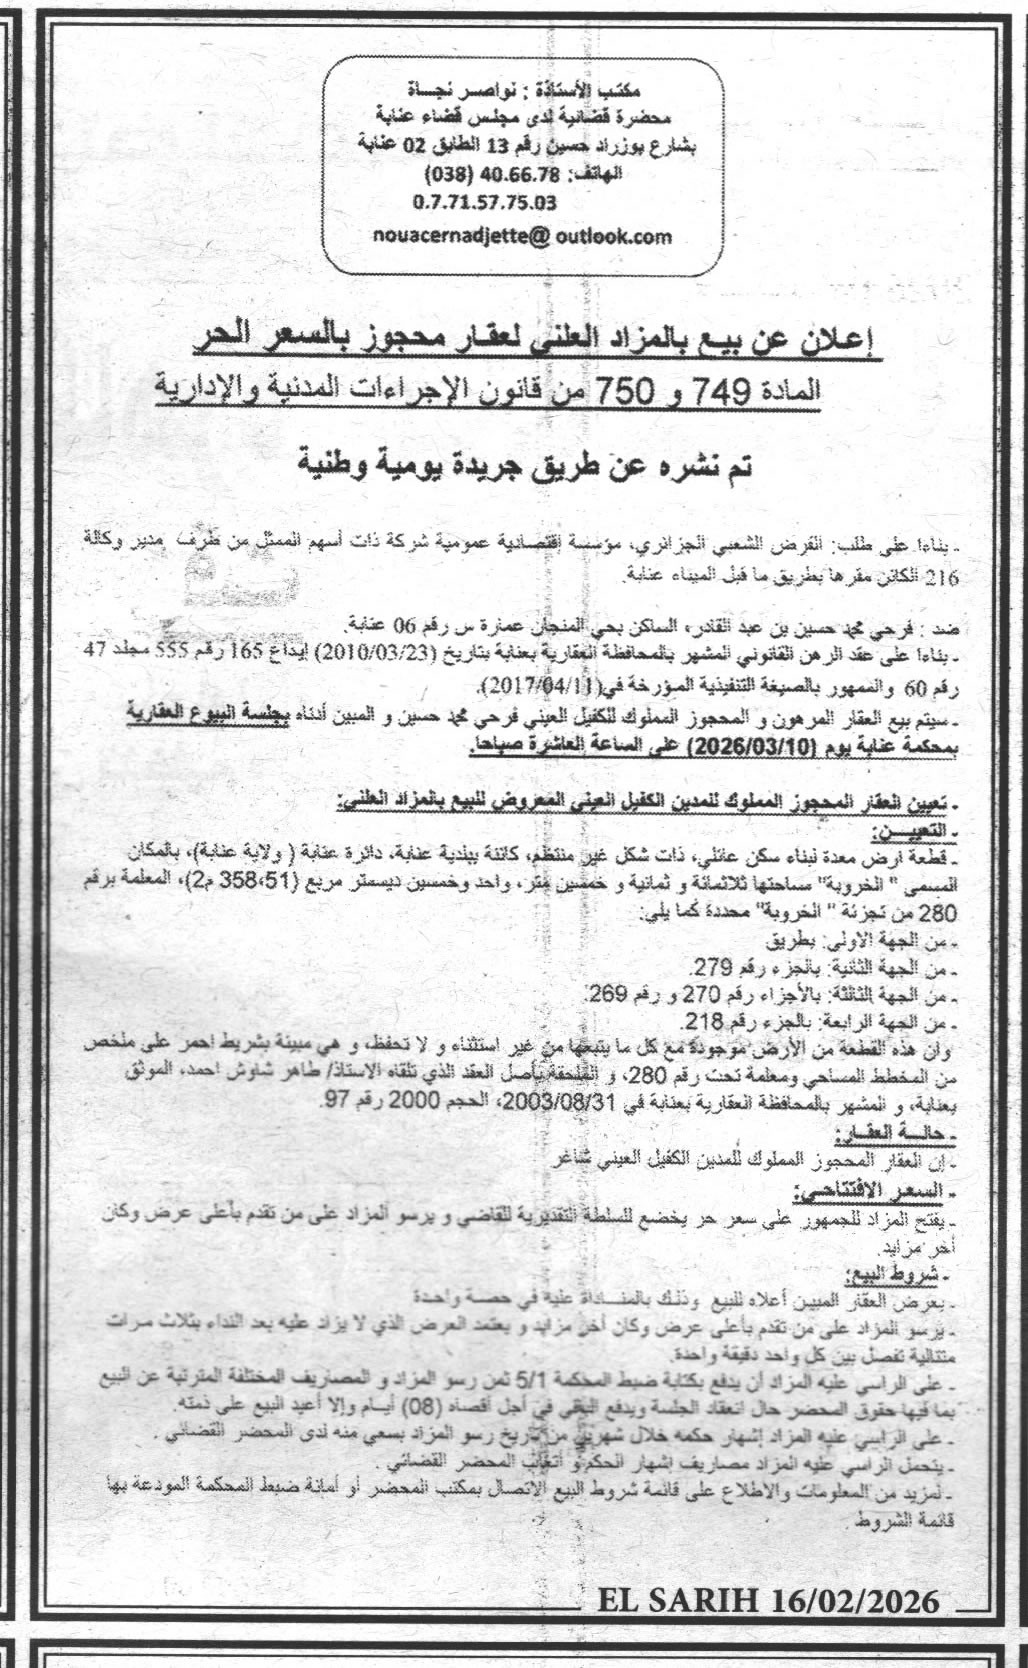 مكتب الأستاذة : نواصر نجاة
محضرة قضائية لدى مجلس قضاء عنابة
بشارع بوزراد حسين رقم 13 الطابق 02 عنابة
الهاتف: 40.66.78 (038)
0.7.71.57.75.03
nouacernadjette@ outlook.com
إعلان عن بيع بالمزاد العلني لعقار محجوز بالسعر الحر
المادة 749 و 750 من قانون الإجراءات المدنية والإدارية
تم نشره عن طريق جريدة يومية وطنية
- بناءا على طلب: القرض الشعبي الجزائري، مؤسسة اقتصادية عمومية شركة ذات أسهم الممثل من طرف مدير وكالة
216 الكائن مقرها بطريق ما قبل الميناء عنابة.
ضد : فرحي محمد حسين بن عبد القادر، الساكن بحي المنجان عمارة س رقم 06 عنابة.
- بناءا على عقد الرهن القانوني المشهر بالمحافظة العقارية بعنابة بتاريخ (2010/03/23) إيداع 165 رقم 555 مجلد 47
رقم 60 والممهور بالصيغة التنفيذية المؤرخة في(2017/04/11).
- سيتم بيع العقار المرهون و المحجوز المملوك للكفيل العيني فرحي محمد حسين و المبين أدناه بجلسة البيوع العقارية
بمحكمة عنابة يوم (2026/03/10) على الساعة العاشرة صباحا.
- تعيين العقار المحجوز المملوك للمدين الكفيل العيني المعروض للبيع بالمزاد العلني:
- التعييـــن:
- قطعة ارض معدة لبناء سكن عائلي، ذات شكل غير منتظم، كائنة ببلدية عنابة، دائرة عنابة ( ولاية عنابة)، بالمكان
المسمى " الخروبة" مساحتها ثلاثمائة و ثمانية و خمسين متر، واحد وخمسين ديسمتر مربع (358،51 م2)، المعلمة برقم
280 من تجزئة " الخروبة" محددة كما يلي:
- من الجهة الاولى: بطريق
- من الجهة الثانية: بالجزء رقم 279.
- من الجهة الثالثة: بالأجزاء رقم 270 و رقم 269.
- من الجهة الرابعة: بالجزء رقم 218.
وان هذه القطعة من الأرض موجودة مع كل ما يتبعها من غير استثناء و لا تحفظ، و هي مبينة بشريط احمر على ملخص
من المخطط المساحي ومعلمة تحت رقم 280، و الملحقة بأصل العقد الذي تلقاه الاستاذ/ طاهر شاوش احمد، الموثق
بعنابة، و المشهر بالمحافظة العقارية بعنابة في 2003/08/31، الحجم 2000 رقم 97.
- حالــة العقــار:
- إن العقار المحجوز المملوك للمدين الكفيل العيني شاغر
- السعر الافتتاحي:
- يفتح المزاد للجمهور على سعر حر يخضع للسلطة التقديرية للقاضي و يرسو المزاد على من تقدم بأعلى عرض وكان
أخر مزايد.
- شروط البيع:
- يعرض العقار المبين أعلاه للبيع وذلك بالمنــاداة عليه في حصة واحدة
- يرسو المزاد على من تقدم بأعلى عرض وكان أخر مزايد و يعتمد العرض الذي لا يزاد عليه بعد النداء بثلاث مرات
متتالية تفصل بين كل واحد دقيقة واحدة.
- على الراسي عليه المزاد أن يدفع بكتابة ضبط المحكمة 5/1 ثمن رسو المزاد و المصاريف المختلفة المترتبة عن البيع
بما فيها حقوق المحضر حال انعقاد الجلسة ويدفع الباقي في أجل أقصاه (08) أيام وإلا أعيد البيع على ذمته.
- على الراسي عليه المزاد إشهار حكمه خلال شهرين من تاريخ رسو المزاد بسعي منه لدى المحضر القضائي .
- يتحمل الراسي عليه المزاد مصاريف إشهار الحكم و أتعاب المحضر القضائي .
- لمزيد من المعلومات والاطلاع على قائمة شروط البيع الاتصال بمكتب المحضر أو أمانة ضبط المحكمة المودعة بها
قائمة الشروط .
EL SARIH 16/02/2026